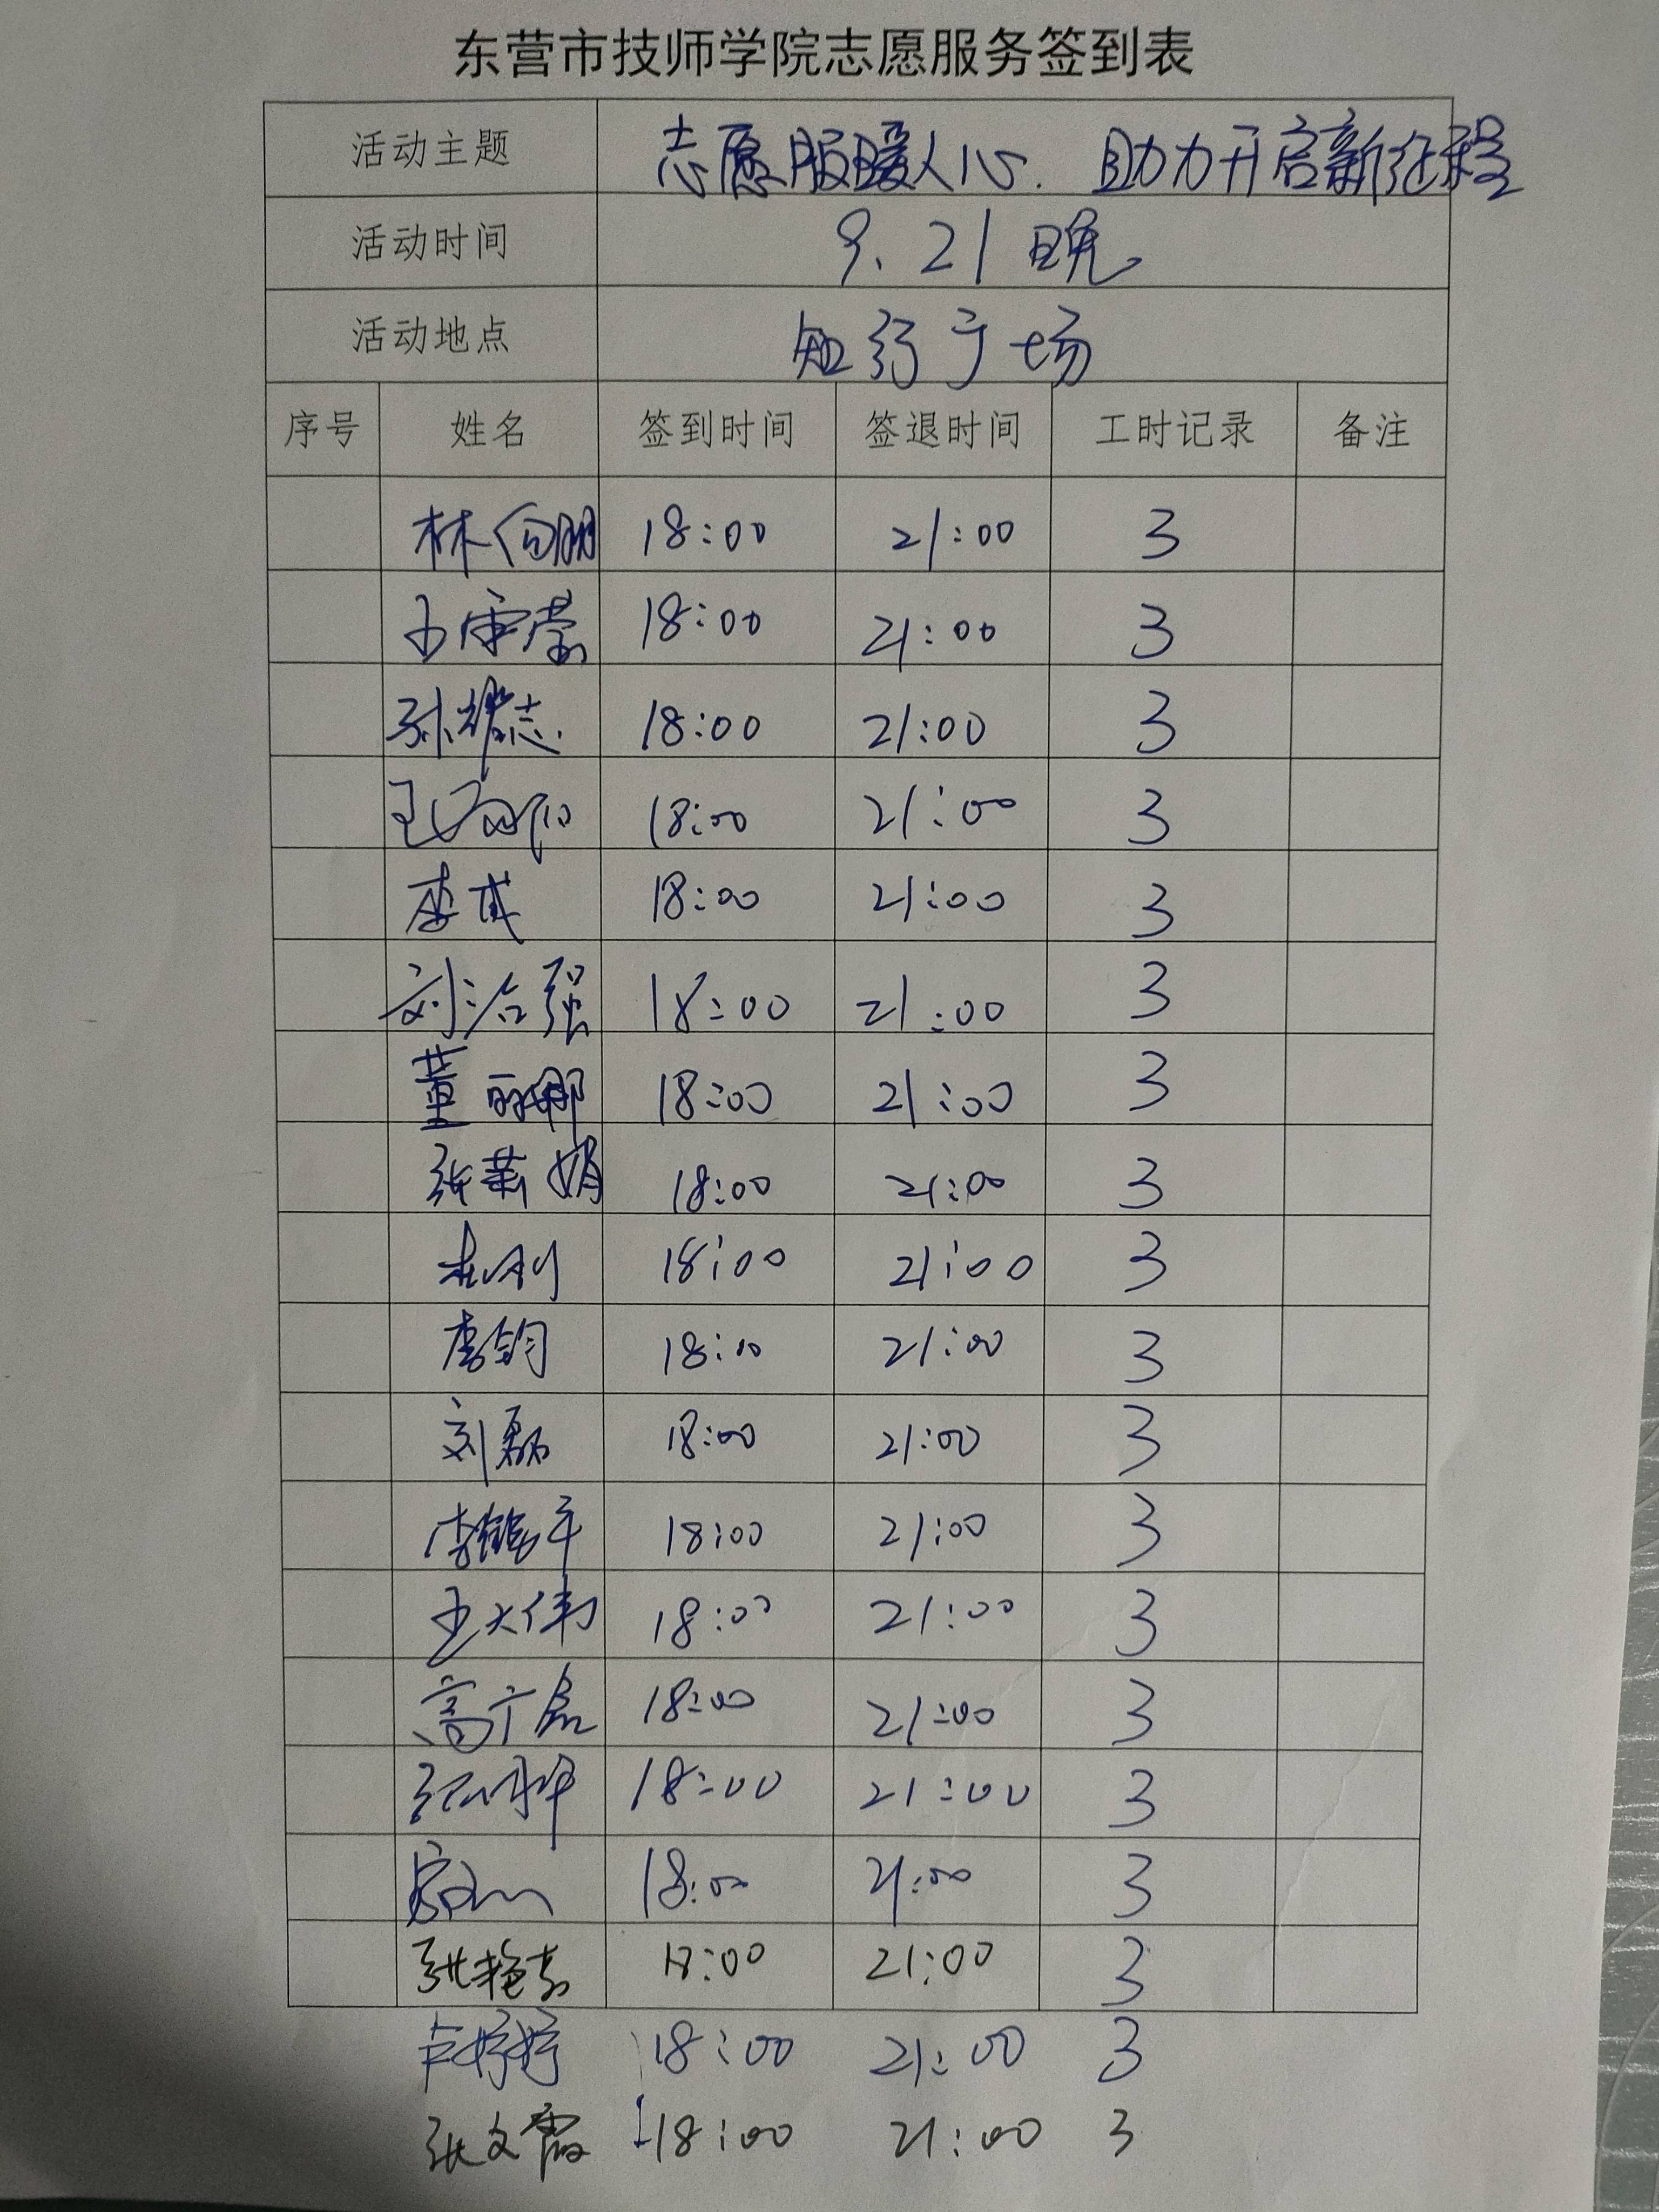 东营市技师学院志愿服务签到表
活动主题 志愿服暖人心. 助力开启新征程
活动时间 9.21晚
活动地点 知行广场
序号 姓名 签到时间 签退时间 工时记录 备注
林向朋 18:00 21:00 3
18:00 21:00 3
孙耀志 18:00 21:00 3
18:00 21:00 3
李成 18:00 21:00 3
刘治强 18:00 21:00 3
董丽娜 18:00 21:00 3
张菊娟 18:00 21:00 3
杜刚 18:00 21:00 3
李钧 18:00 21:00 3
刘磊 18:00 21:00 3
18:00 21:00 3
王大伟 18:00 21:00 3
高广磊 18:00 21:00 3
18:00 21:00 3
18:00 21:00 3
张艳 18:00 21:00 3
卢婷婷 18:00 21:00 3
张文霞 18:00 21:00 3